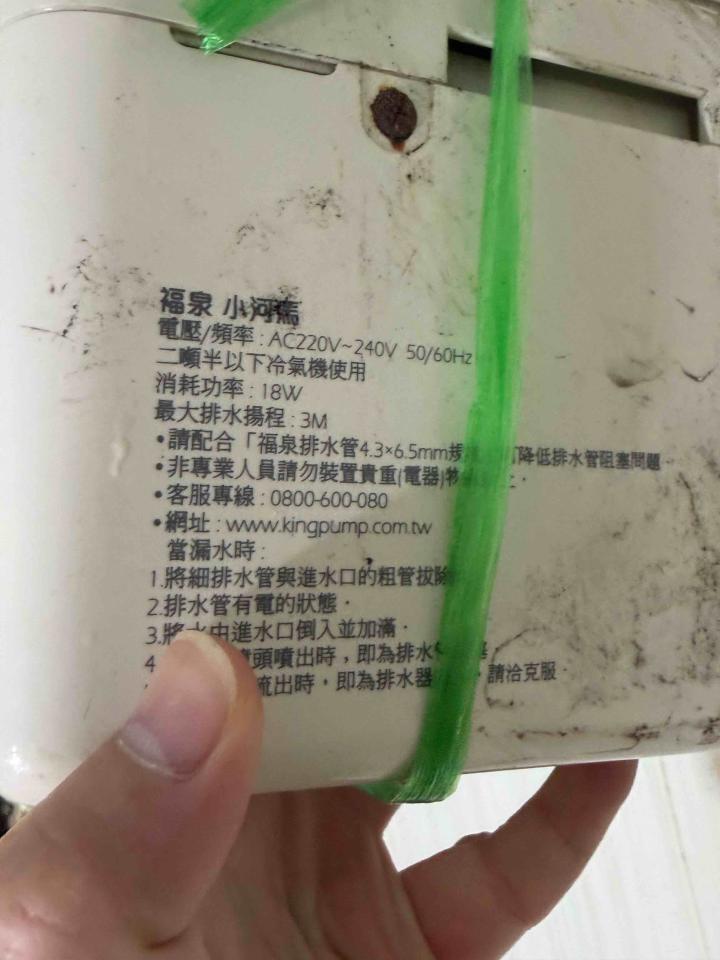 福泉 小河馬
電壓/頻率 : AC220V~240V 50/60Hz
二噸半以下冷氣機使用
消耗功率 : 18W
最大排水揚程 : 3M
•請配合「福泉排水管4.3×6.5mm規 降低排水管阻塞問題.
•非專業人員請勿裝置貴重(電器)物 上.
•客服專線 : 0800-600-080
•網址 : www.kingpump.com.tw
當漏水時 :
1.將細排水管與進水口的粗管拔除
2.排水管有電的狀態.
3.將水由進水口倒入並加滿.
4 頭噴出時，即為排水
流出時，即為排水器 ，請洽克服.